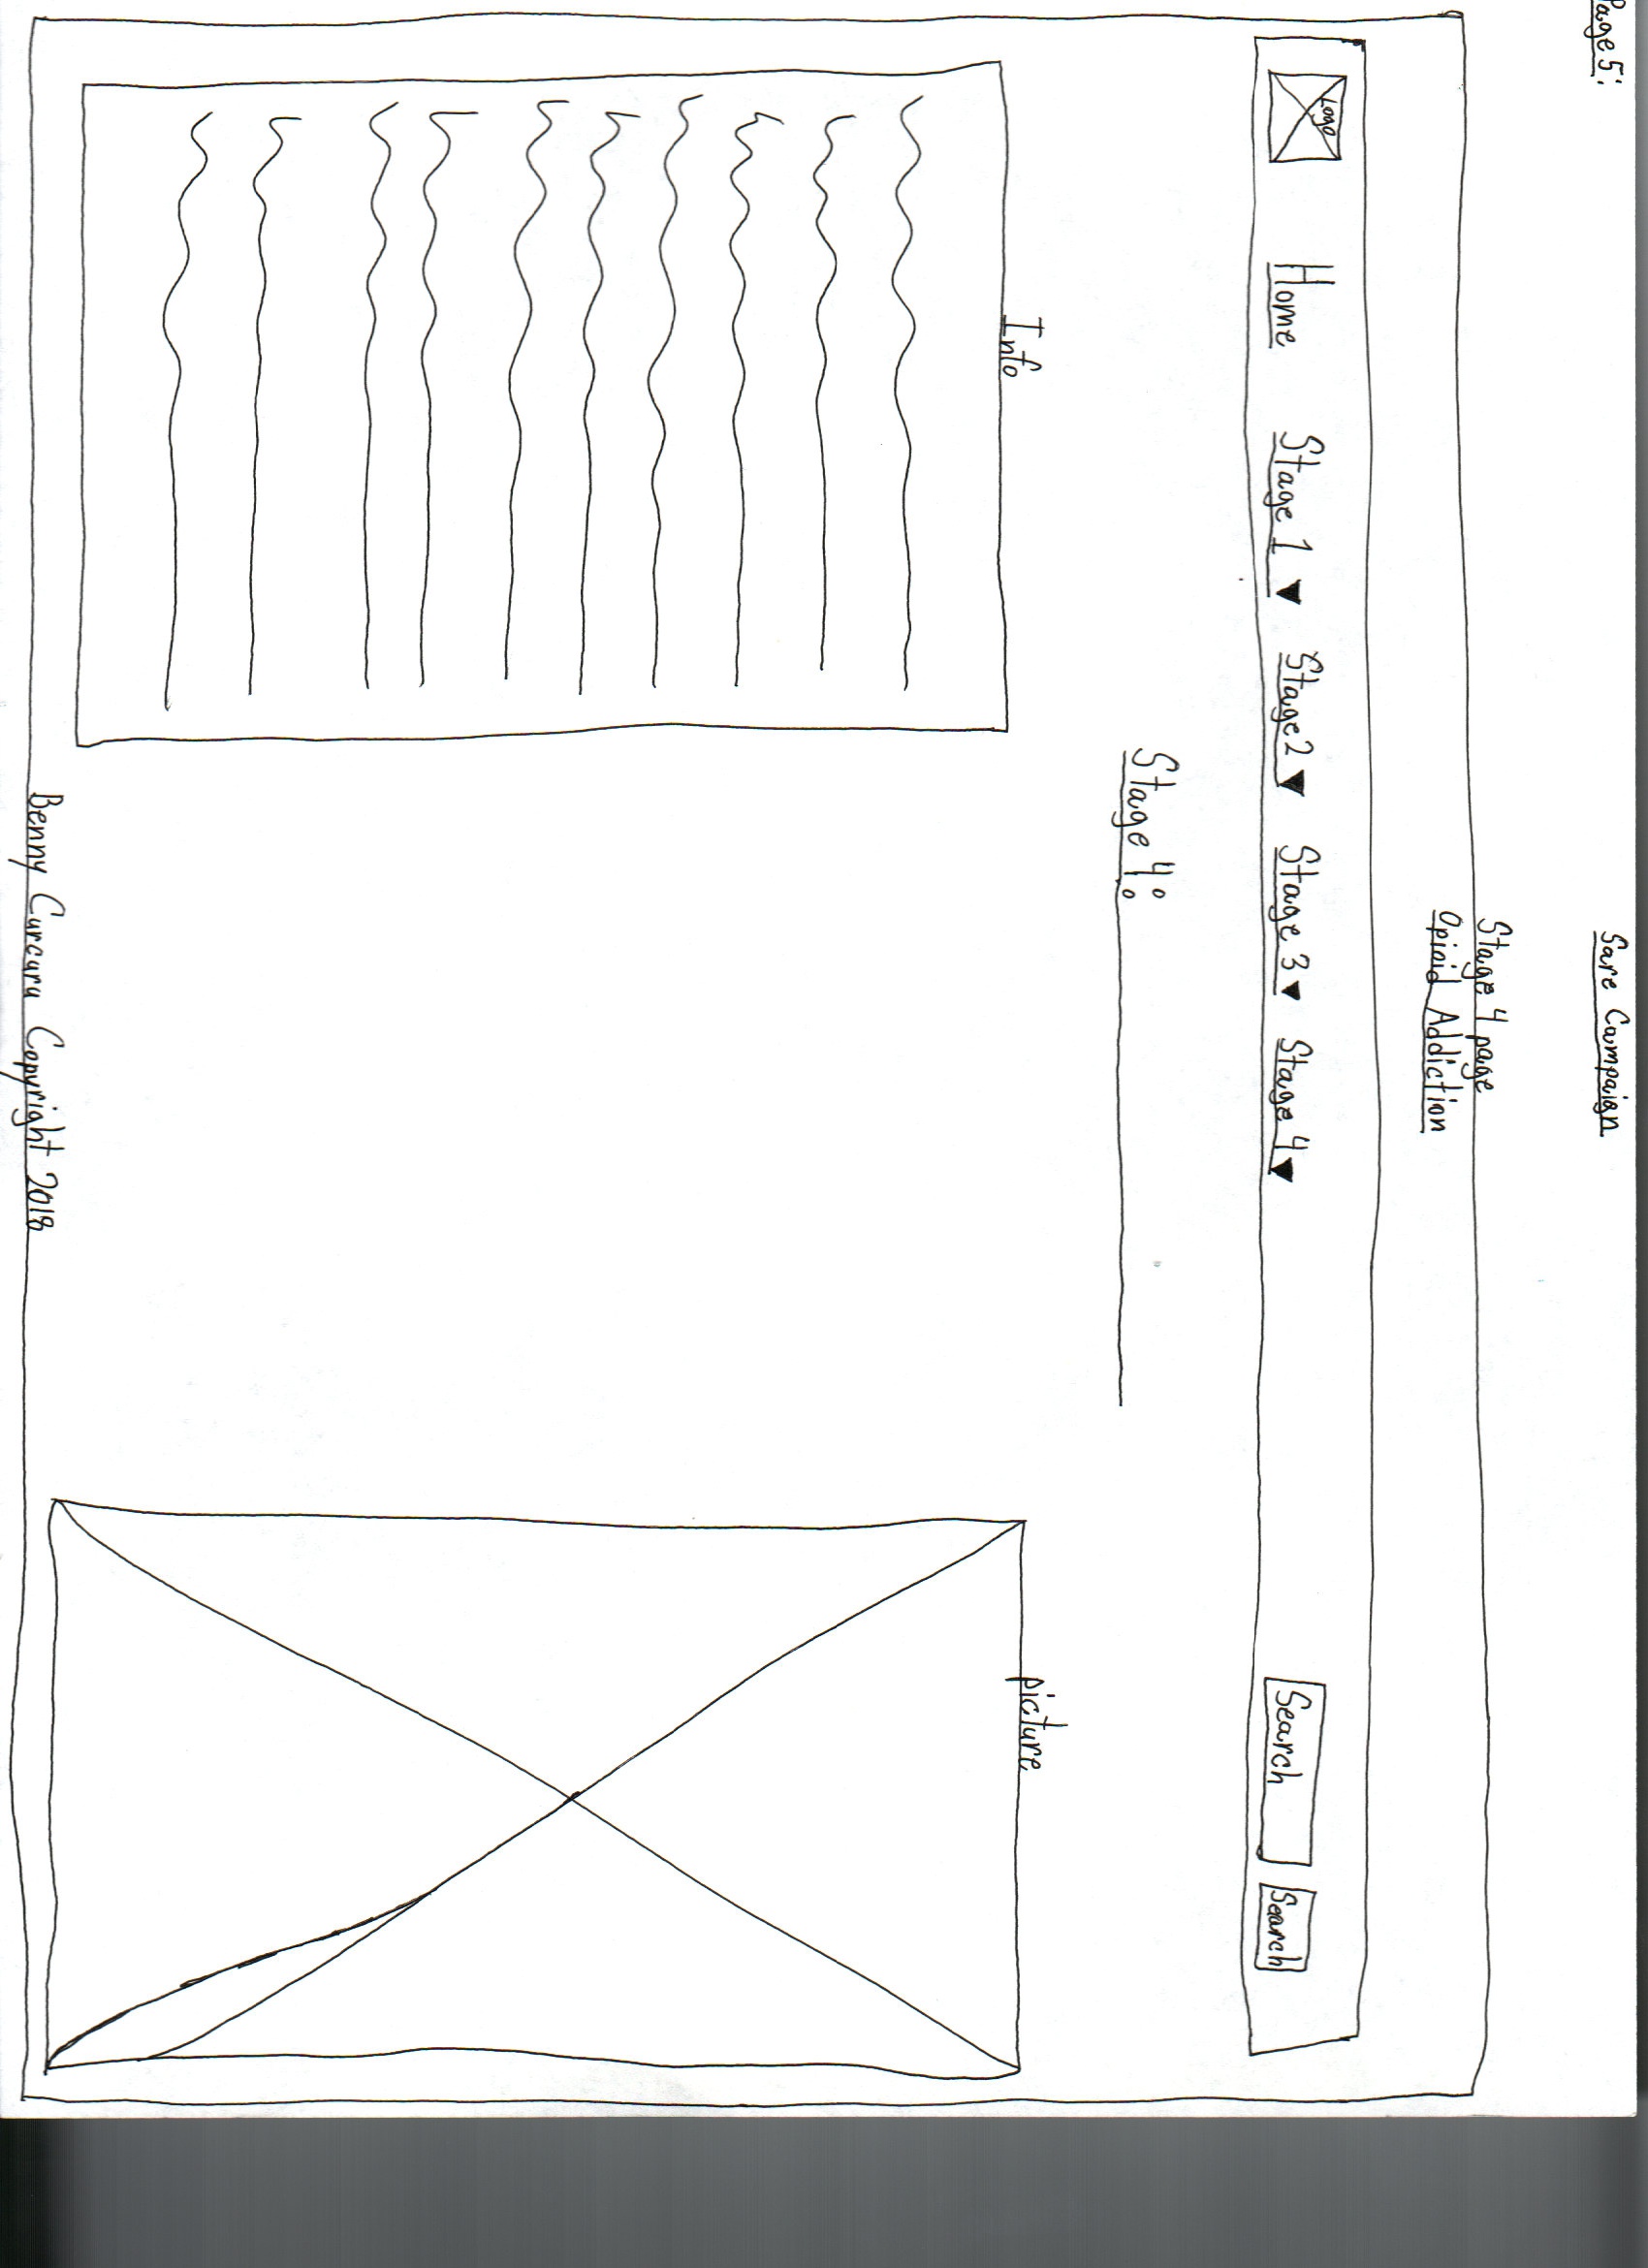 Page 5:
Sare Campaign
Stage 4 page
Opioid Addiction
Logo Home Stage 1 Stage 2 Stage 3 Stage 4 Search Search
Stage 4:
Info
picture
Benny Curcuru Copyright 2018